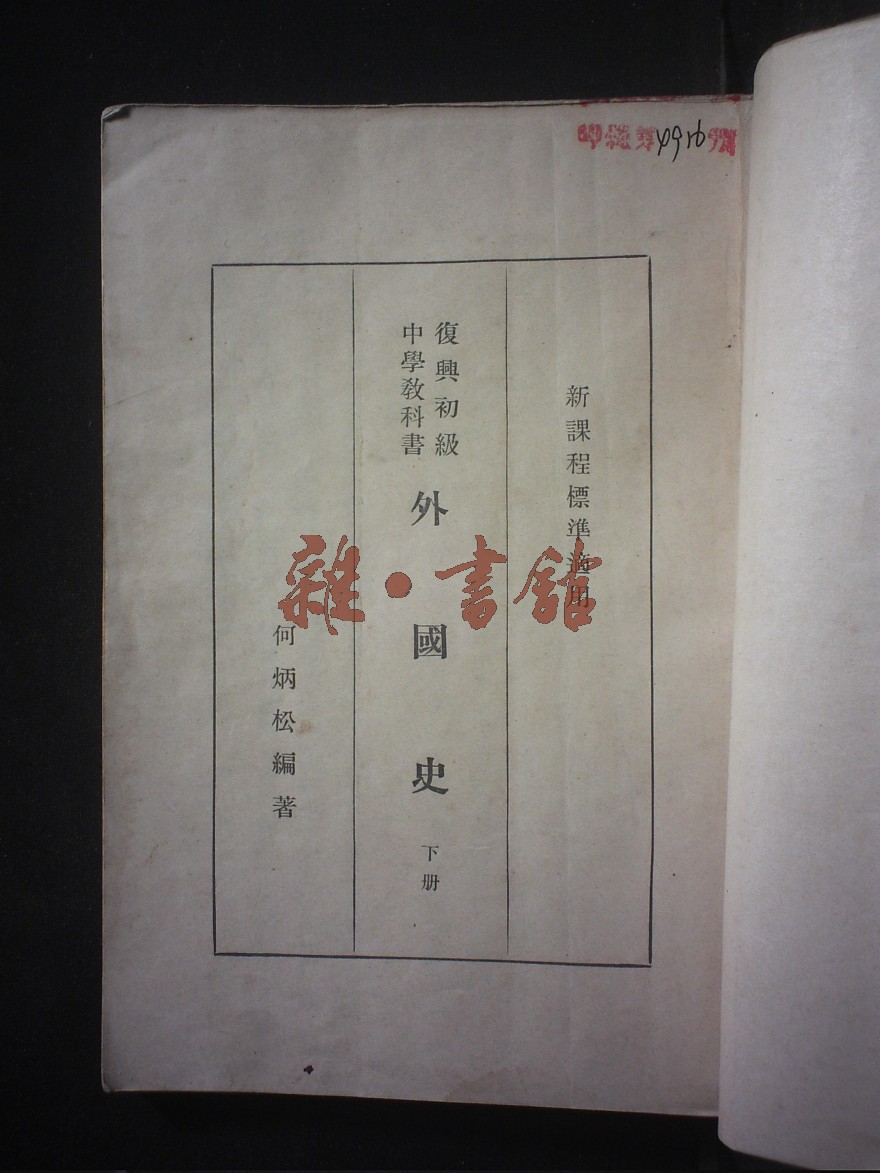 4926
新課程標準適用
復興初級
中學教科書
外國史
下册
何炳松編著
雜·書館